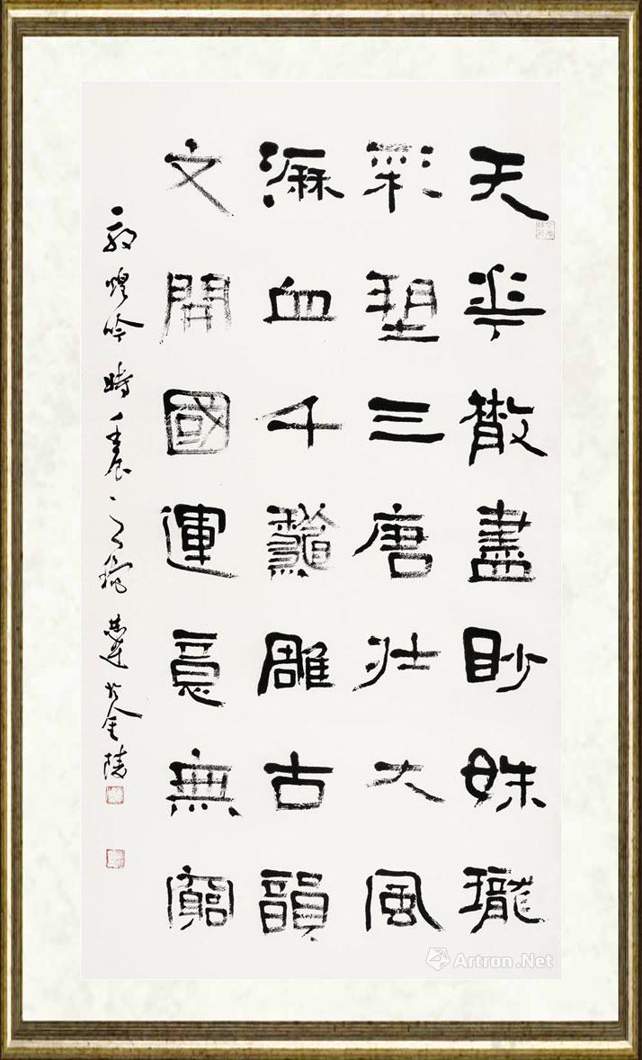 天華散盡眇姝瓏
彩塑三唐壯大風
血千龝雕古韻
文開國運意無窮
敦煌吟 時壬辰之 於金陵
Artron.Net